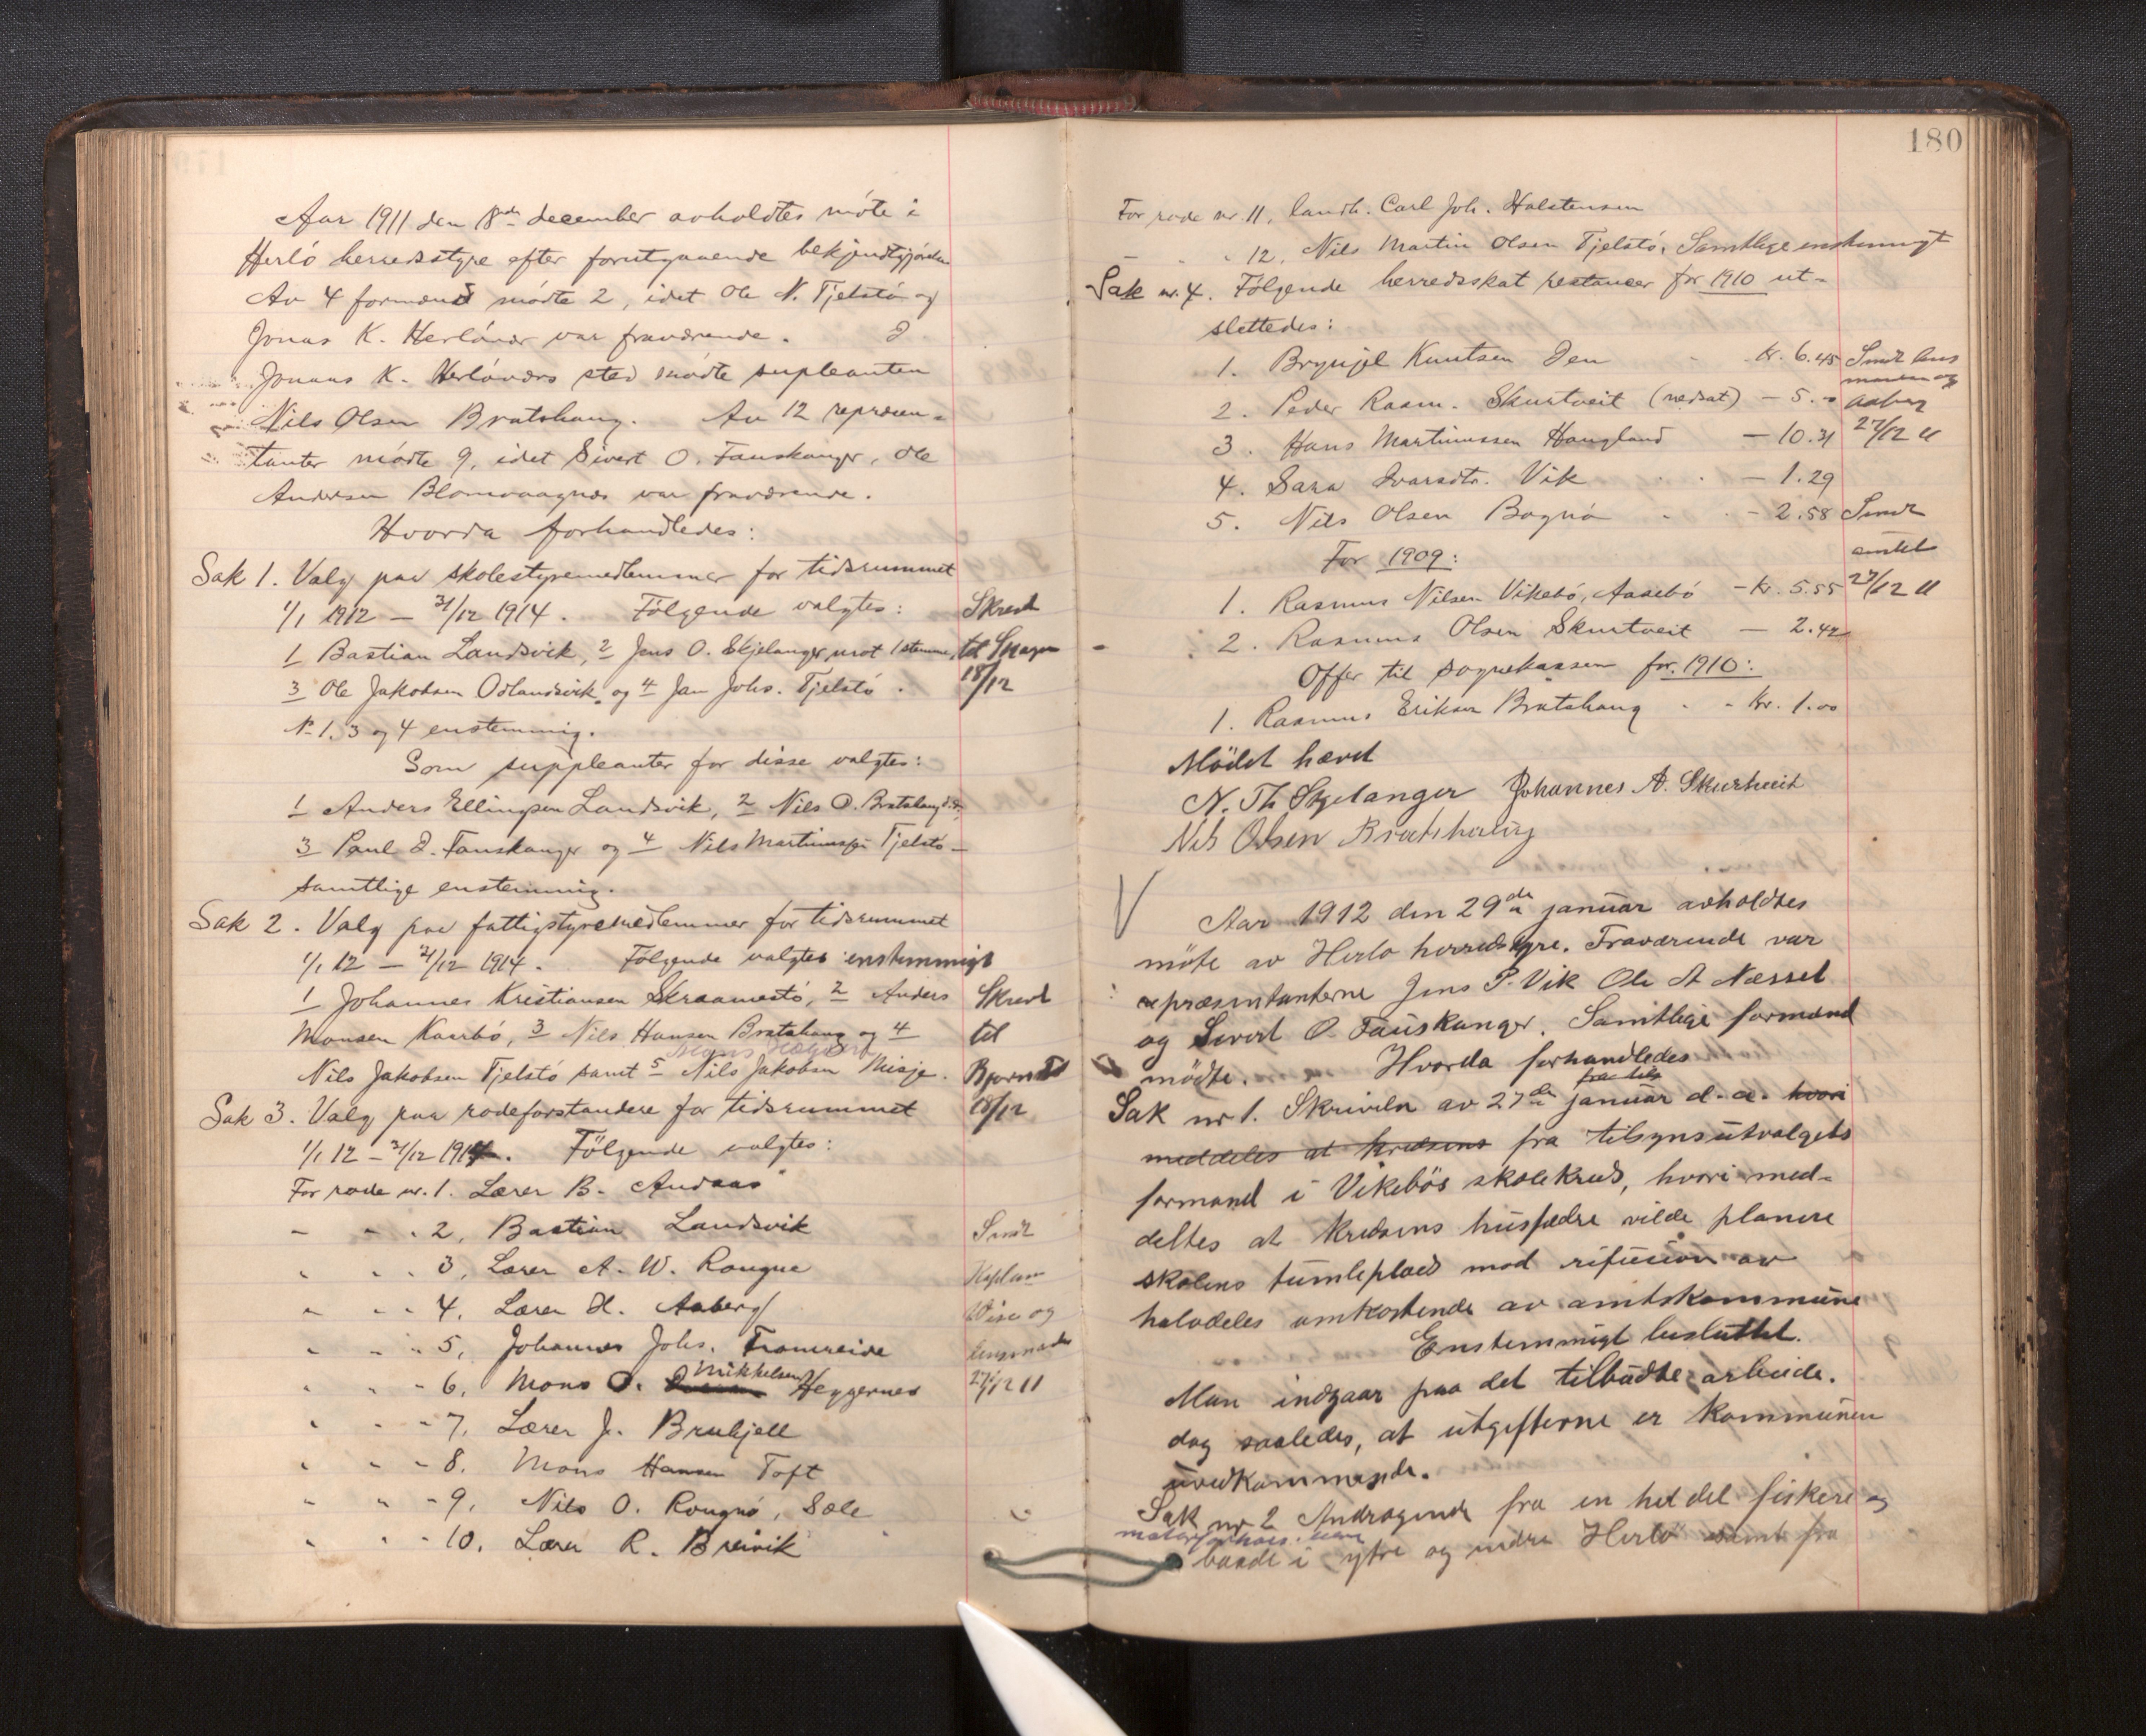 Aar 1911 den 18de december avholdtes möte i
Herlö herredsstyre efter forutgaaende bekjendtgjörelse
Av 4 formænd mödte 2, idet Ole N. Tjelstö og
Jonas K. Herlövær var fraværende. I
Jonas K. Herlöværs sted mödte supleanten
Nils Olsen Bratshaug. Av 12 repræsen-
tanter mödte 9, idet Sivert O. Fauskanger, Ole
Andersen Blomvaagnæs var fraværende.
Hvorda forhandledes:
Sak 1. Valg paa skolestyremedlemmer for tidsrummet
1/1 1912 – 31/12 1914. Følgende valgtes:
1 Bastian Landsvik, 2 Jens O. Skjelanger, mot 1 stemme,
3 Ole Jakobsen Odlandsvik og 4 Jan Johs. Tjelstö.
N. 1, 3 og 4 enstemmig.
Skrevt
til
18/12
Som suppleanter for disse valgtes:
1 Anders Ellingsen Landsvik, 2 Nils O. Bratshaug
3 Paul I. Fauskanger og 4 Nils Martinussen Tjelstö –
samtlige enstemmig.
Sak 2. Valg paa fattigstyremedlemmer for tidsrummet
1/1 12 – 31/12 1914. Følgende valgtes enstemmigt
1 Johannes Kristiansen Skraamestö, 2 Anders
Monsen Kaarbö, 3 Nils Hansen Bratshaug og 4
Nils Jakobsen Tjelstö samt 5 Nils Jakobsen Misje.
Skrevt
til
18/12
Sak 3. Valg paa rodeforstandere for tidsrummet
1/1 12 – 31/12 1914. Følgende valgtes:
For rode nr. 1. Lærer B. Andaas
" " " 2, Bastian Landsvik
" " " 3, Lærer A. W. Rongve
" " " 4, Lærer H. Aaberg
" " " 5, Johannes Johs. Framreide
" " " 6, Mons O. Mikkelsen Heggernes
" " " 7, Lærer J. Brukjell
" " " 8. Mons Hansen Toft
" " " 9, Nils O. Rongnö, Sæle
" " " 10, Lærer R. Breivik
Sendt
og
27/12 11
180
For rode nr. 11, landh. Carl Joh. Halstensen
" " " 12, Nils Martin Olsen Tjelstö. Samtlige enstemmigt
Sak nr. 4. Følgende herredsskat restancer for 1910 ut-
slettedes:
1. Brynjel Knutsen Den kr. 6.45
2. Peder Rasm. Skurtveit (nedsat) – 5.–
3. Hans Martinussen Haugland – 10.31
4. Sara Ivarsdtr. Vik – 1.29
5. Nils Olsen Bognö – 2.58
Sendt lens
manden og
Aaberg
27/12 11
For 1909:
1. Rasmus Nilsen Vikebö, Aasebö – kr. 5.55
2. Rasmus Olsen Skurtveit – 2.42
Sendt
amtet
27/12 11
Offer til sognekassen for 1910:
1. Rasmus Eriksen Bratshaug kr. 1.00
Mödet hævet
N. Th Skjelanger Johannes A. Skurtveit
Nils Olsen Bratshaug
Aar 1912 den 29de januar avholdtes
möte av Herlo herredstyre. Fraværende var
repræsentanterne Jens P. Vik Ole A Nærset
og Sivert O. Fauskanger. Samtlige formænd
mödte. Hvorda forhandledes
Sak nr 1. Skrivelse av 27de januar d. a. hvori
meddeles at kredsens fra tilsynsutvalgets
formand i Vikebös skolekreds, hvori med-
deltes at kredsens husfædre vilde planere
skolens tumleplads mod refusion av
halvdeles omkostende av amtskommune
Enstemmigt besluttet.
Man indgaar paa det tilbudte arbeide.
dog saaledes, at utgifterne er kommunen
uvedkommende.
Sak nr 2 Andragende fra en hel del fiskere og
baade i ytre og indre Herlö samt fra